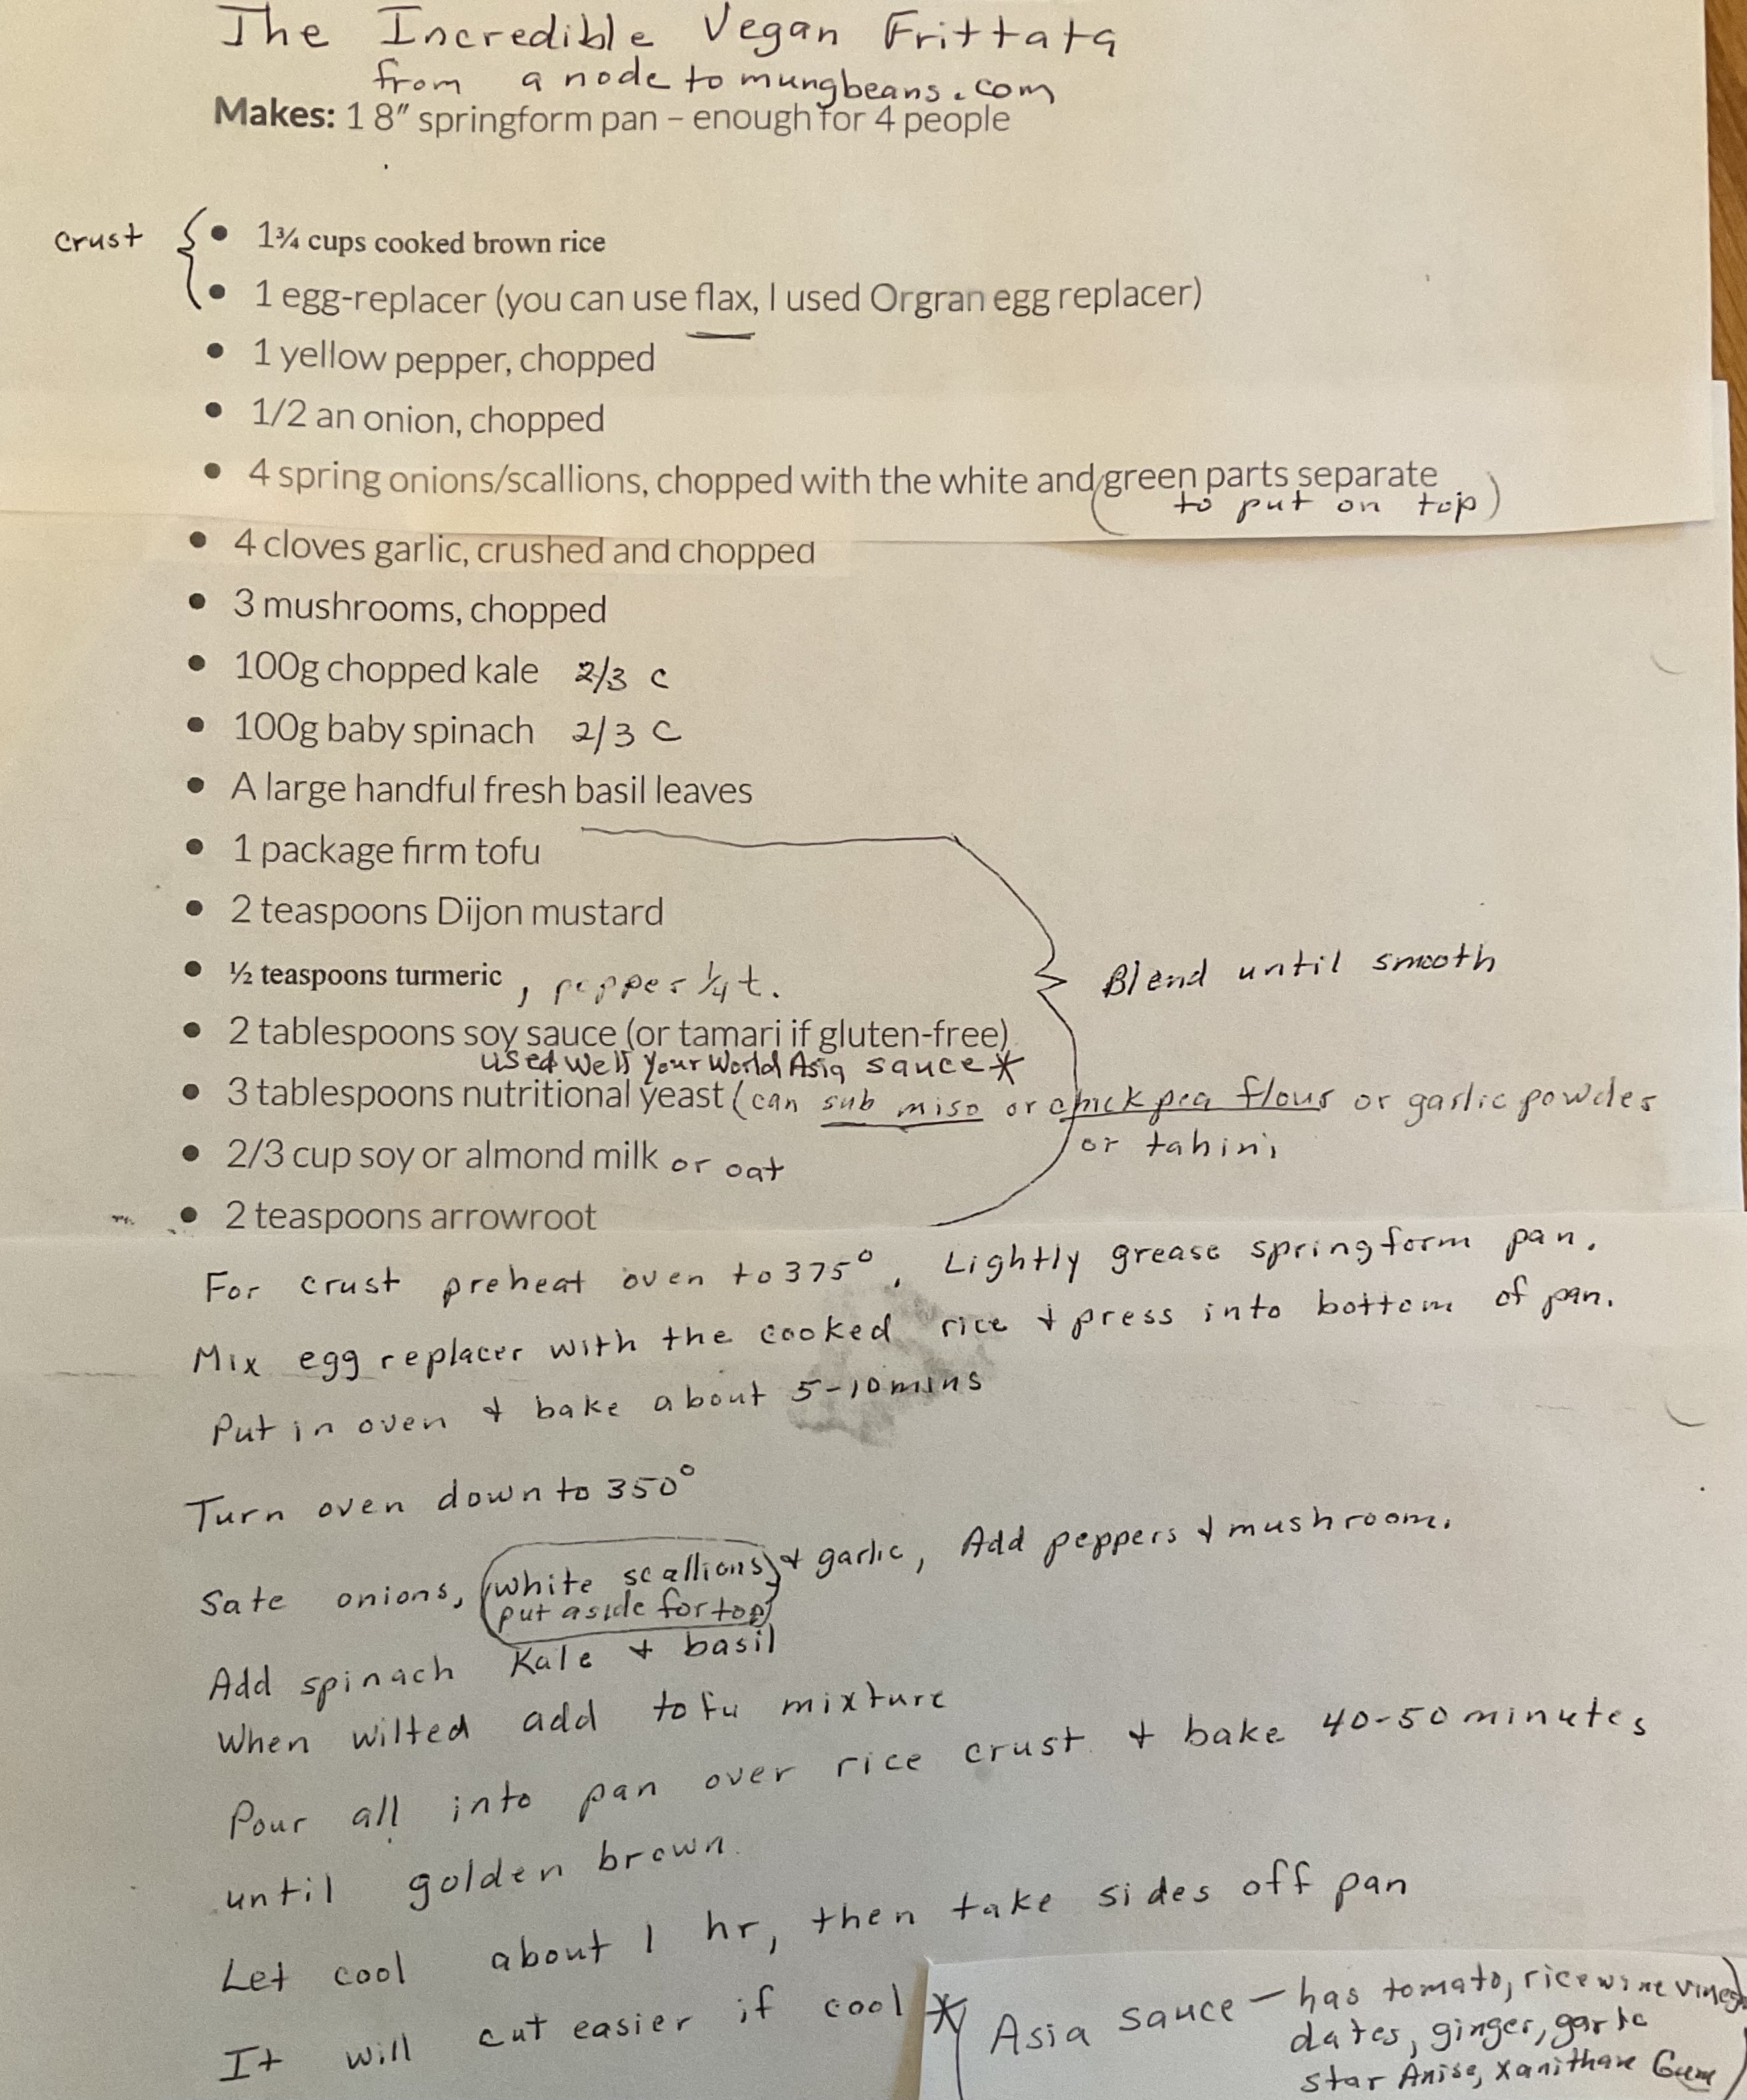 The Incredible Vegan Frittata
from a node to mungbeans.com
Makes: 1 8" springform pan – enough for 4 people
crust
• 1¾ cups cooked brown rice
• 1 egg-replacer (you can use flax, I used Orgran egg replacer)
• 1 yellow pepper, chopped
• 1/2 an onion, chopped
• 4 spring onions/scallions, chopped with the white and green parts separate
(to put on top)
• 4 cloves garlic, crushed and chopped
• 3 mushrooms, chopped
• 100g chopped kale 2/3 c
• 100g baby spinach 2/3 C
• A large handful fresh basil leaves
• 1 package firm tofu
• 2 teaspoons Dijon mustard
Blend until smooth
• ½ teaspoons turmeric, pepper ¼ t.
• 2 tablespoons soy sauce (or tamari if gluten-free)
used Well Your World Asia sauce *
• 3 tablespoons nutritional yeast (can sub miso or chickpea flour or garlic powder
or tahini
• 2/3 cup soy or almond milk or oat
• 2 teaspoons arrowroot
For crust preheat oven to 375°. Lightly grease springform pan.
Mix egg replacer with the cooked rice + press into bottom of pan.
Put in oven + bake about 5-10 mins
Turn oven down to 350°
Sate onions, (white scallions) + garlic, Add peppers + mushroom.
put aside for top)
Add spinach Kale + basil
When wilted add tofu mixture
Pour all into pan over rice crust + bake 40-50 minutes
until golden brown.
Let cool about 1 hr, then take sides off pan
It will cut easier if cool
* (Asia sauce — has tomato, rice wine vineg
dates, ginger, garlic
star Anise, xanithane Gum)